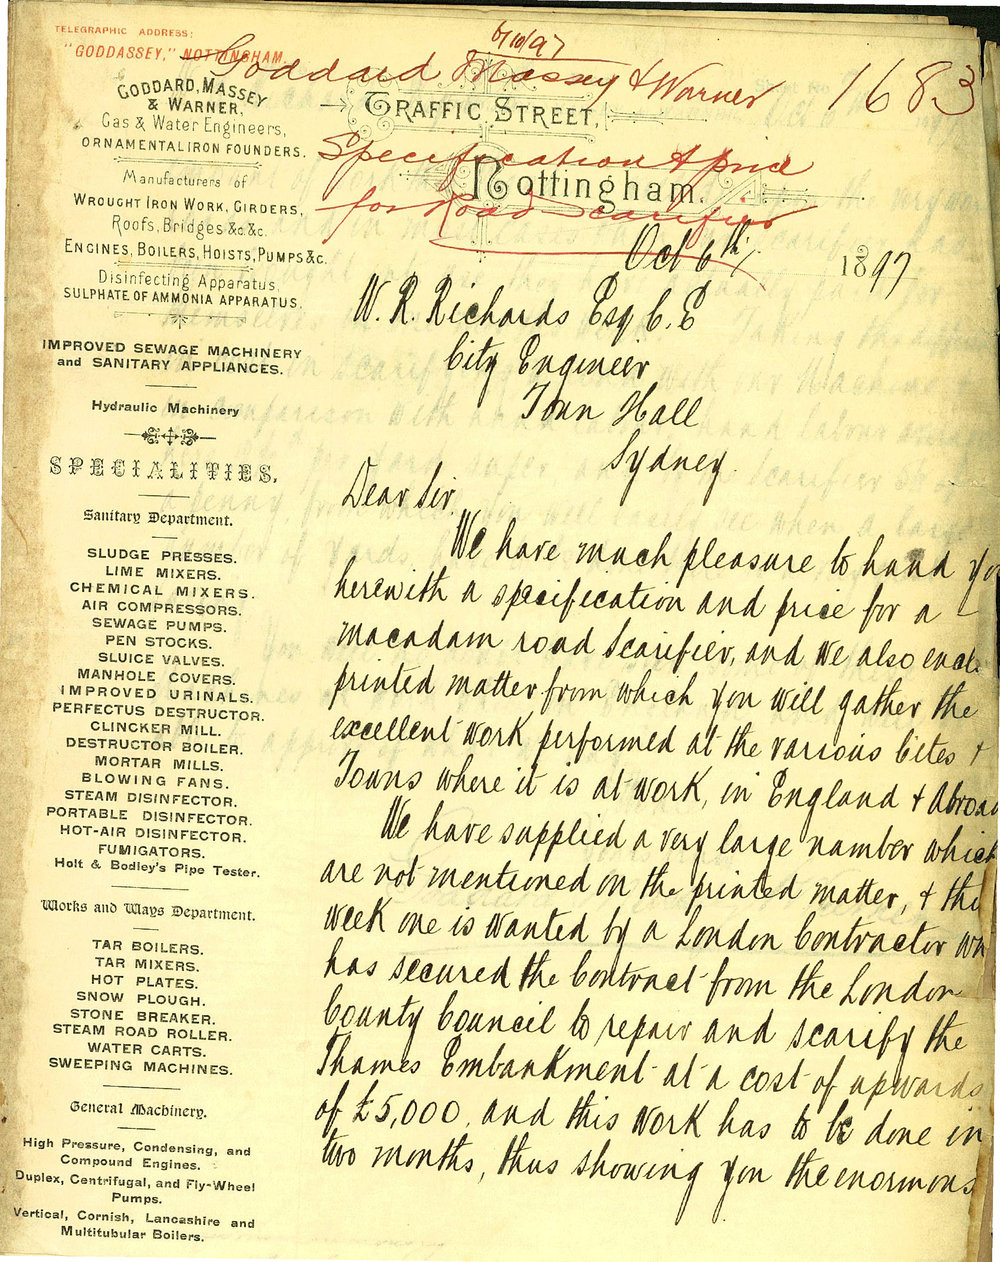 TELEGRAPHIC ADDRESS:
"GODDASSEY," NOTTINGHAM.
6/10/97
Goddard Massey & Warner
1683
Specification & price
for Road Scarifier
GODDARD, MASSEY
& WARNER,
Gas & Water Engineers,
ORNAMENTAL IRON FOUNDERS.
Manufacturers of
WROUGHT IRON WORK, GIRDERS,
Roofs, Bridges &c. &c.
ENGINES, BOILERS, HOISTS, PUMPS &c.
Disinfecting Apparatus,
SULPHATE OF AMMONIA APPARATUS.
IMPROVED SEWAGE MACHINERY
and SANITARY APPLIANCES.
Hydraulic Machinery
SPECIALITIES.
Sanitary Department.
SLUDGE PRESSES.
LIME MIXERS.
CHEMICAL MIXERS.
AIR COMPRESSORS.
SEWAGE PUMPS.
PEN STOCKS.
SLUICE VALVES.
MANHOLE COVERS.
IMPROVED URINALS.
PERFECTUS DESTRUCTOR.
CLINCKER MILL.
DESTRUCTOR BOILER.
MORTAR MILLS.
BLOWING FANS.
STEAM DISINFECTOR.
PORTABLE DISINFECTOR.
HOT-AIR DISINFECTOR.
FUMIGATORS.
Holt & Bodley's Pipe Tester.
Works and Ways Department.
TAR BOILERS.
TAR MIXERS.
HOT PLATES.
SNOW PLOUGH.
STONE BREAKER.
STEAM ROAD ROLLER.
WATER CARTS.
SWEEPING MACHINES.
General Machinery.
High Pressure, Condensing, and
Compound Engines.
Duplex, Centrifugal, and Fly-Wheel
Pumps.
Vertical, Cornish, Lancashire and
Multitubular Boilers.
TRAFFIC STREET,
Nottingham.
Oct 6th 1897
W. R. Richards Esq C. E
City Engineer
Town Hall
Sydney.
Dear Sir,
We have much pleasure to hand yo
herewith a specification and price for a
macadam road Scarifier, and we also encl
printed matter from which you will gather the
excellent work performed at the various Cites &
Towns where it is at work, in England & Abroad
We have supplied a very large number which
are not mentioned on the printed matter, & this
week one is wanted by a London Contractor wh
has secured the Contract from the London
County Council to repair and scarify the
Thames Embankment at a cost of upwards
of £5,000, and this work has to be done in
two months, thus showing you the enormous